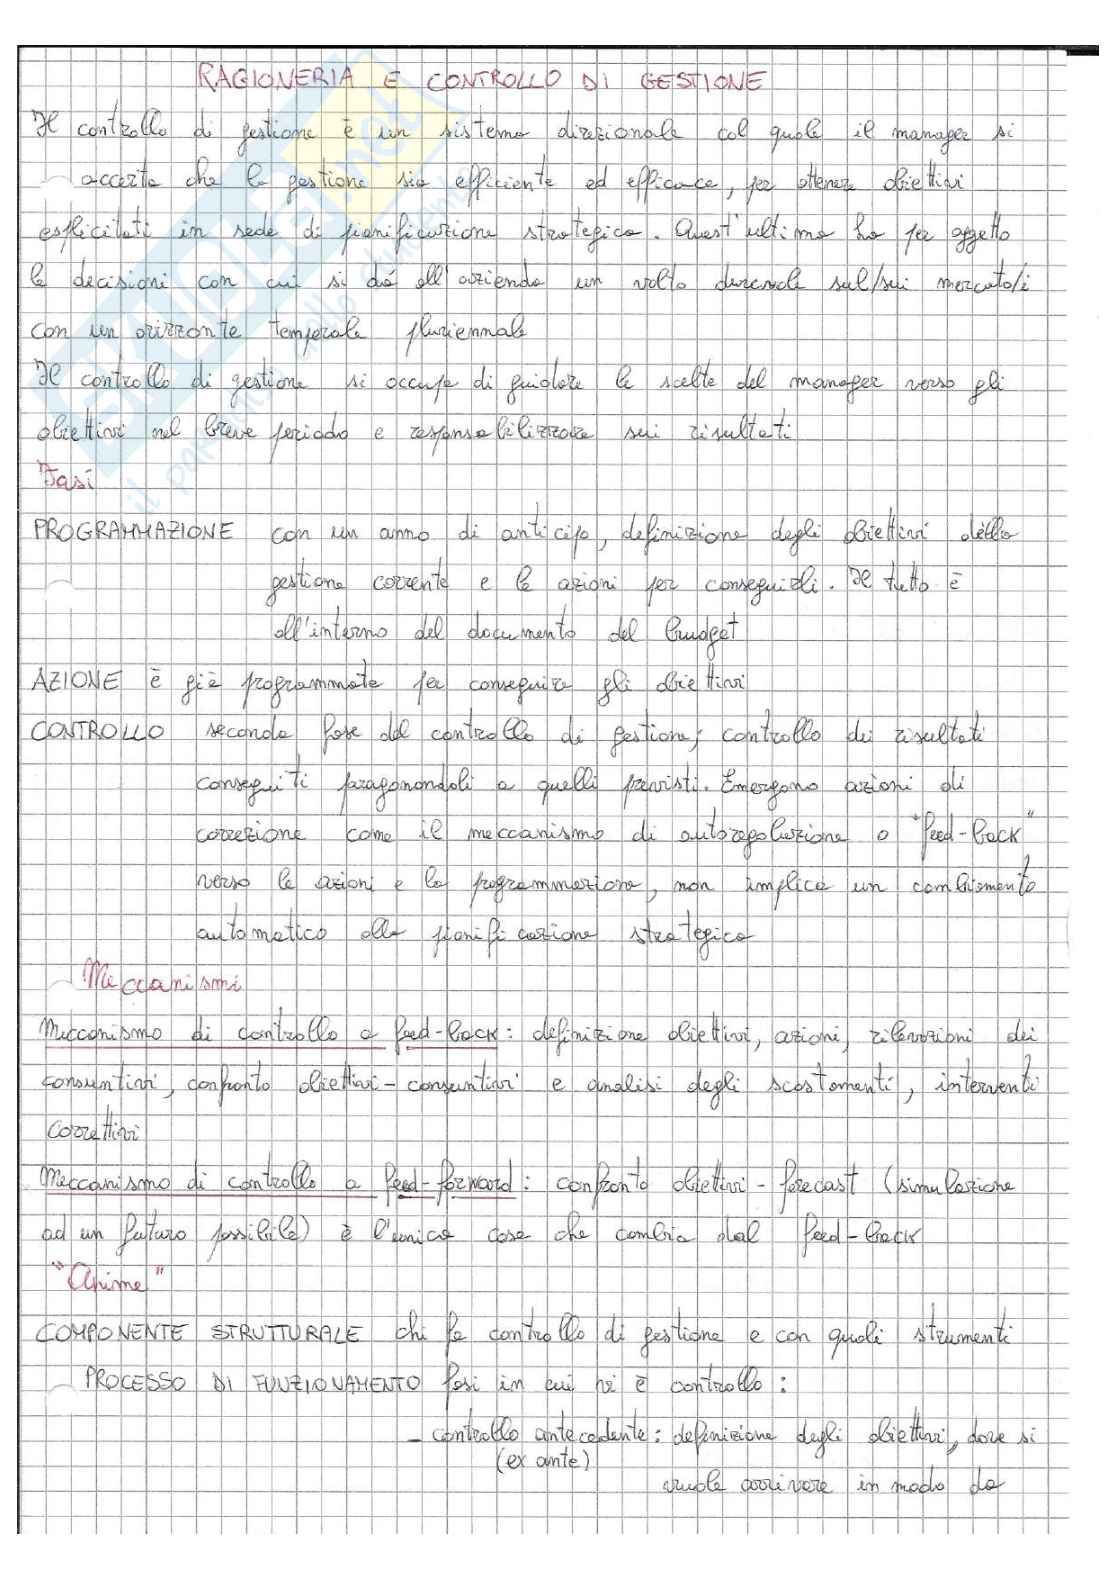 RAGIONERIA E CONTROLLO DI GESTIONE
Il controllo di gestione è un sistema direzionale col quale il manager si
accerta che la gestione sia efficiente ed efficace, per ottenere obiettivi
esplicitati in sede di pianificazione strategica. Quest'ultima ha per oggetto
le decisioni con cui si dà all'azienda un volto durevole sul/sui mercato/i
con un orizzonte temporale pluriennale
Il controllo di gestione si occupa di guidare le scelte del manager verso gli
obiettivi nel breve periodo e responsabilizzare sui risultati
Fasi
PROGRAMMAZIONE con un anno di anticipo, definizione degli obiettivi della
gestione corrente e le azioni per conseguirli. Il tutto è
all'interno del documento del Budget
AZIONE è già programmata per conseguire gli obiettivi
CONTROLLO seconda fase del controllo di gestione, controllo dei risultati
conseguiti paragonandoli a quelli previsti. Emergono azioni di
correzione come il meccanismo di autoregolazione o "feed-back"
verso le azioni e la programmazione, non implica un cambiamento
automatico alla pianificazione strategica
Meccanismi
Meccanismo di controllo a feed-back: definizione obiettivi, azioni, rilevazioni dei
consuntivi, confronto obiettivi-consuntivi e analisi degli scostamenti, interventi
correttivi
Meccanismo di controllo a feed-forward: confronto obiettivi - forecast (simulazione
ad un futuro possibile) è l'unica cosa che cambia dal feed-back
"Anime"
COMPONENTE STRUTTURALE chi fa controllo di gestione e con quali strumenti
PROCESSO DI FUNZIONAMENTO fasi in cui vi è controllo:
- controllo antecedente: definizione degli obiettivi, dove si
(ex ante)
vuole arrivare in modo da
SKUOLA.net